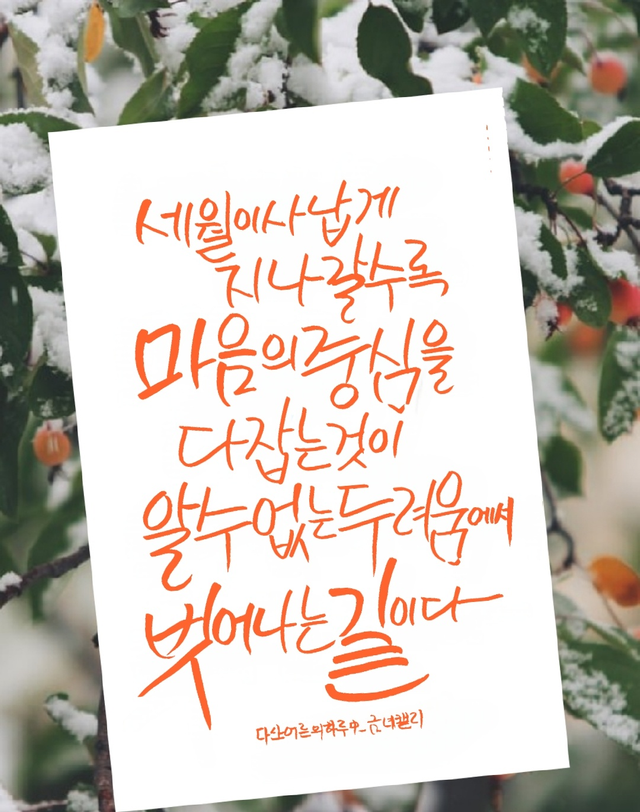 세월이 사납게
지나갈수록
마음의 중심을
다잡는것이
알수없는 두려움에서
벗어나는 길이다
다산어른의하루中_금녀캘리